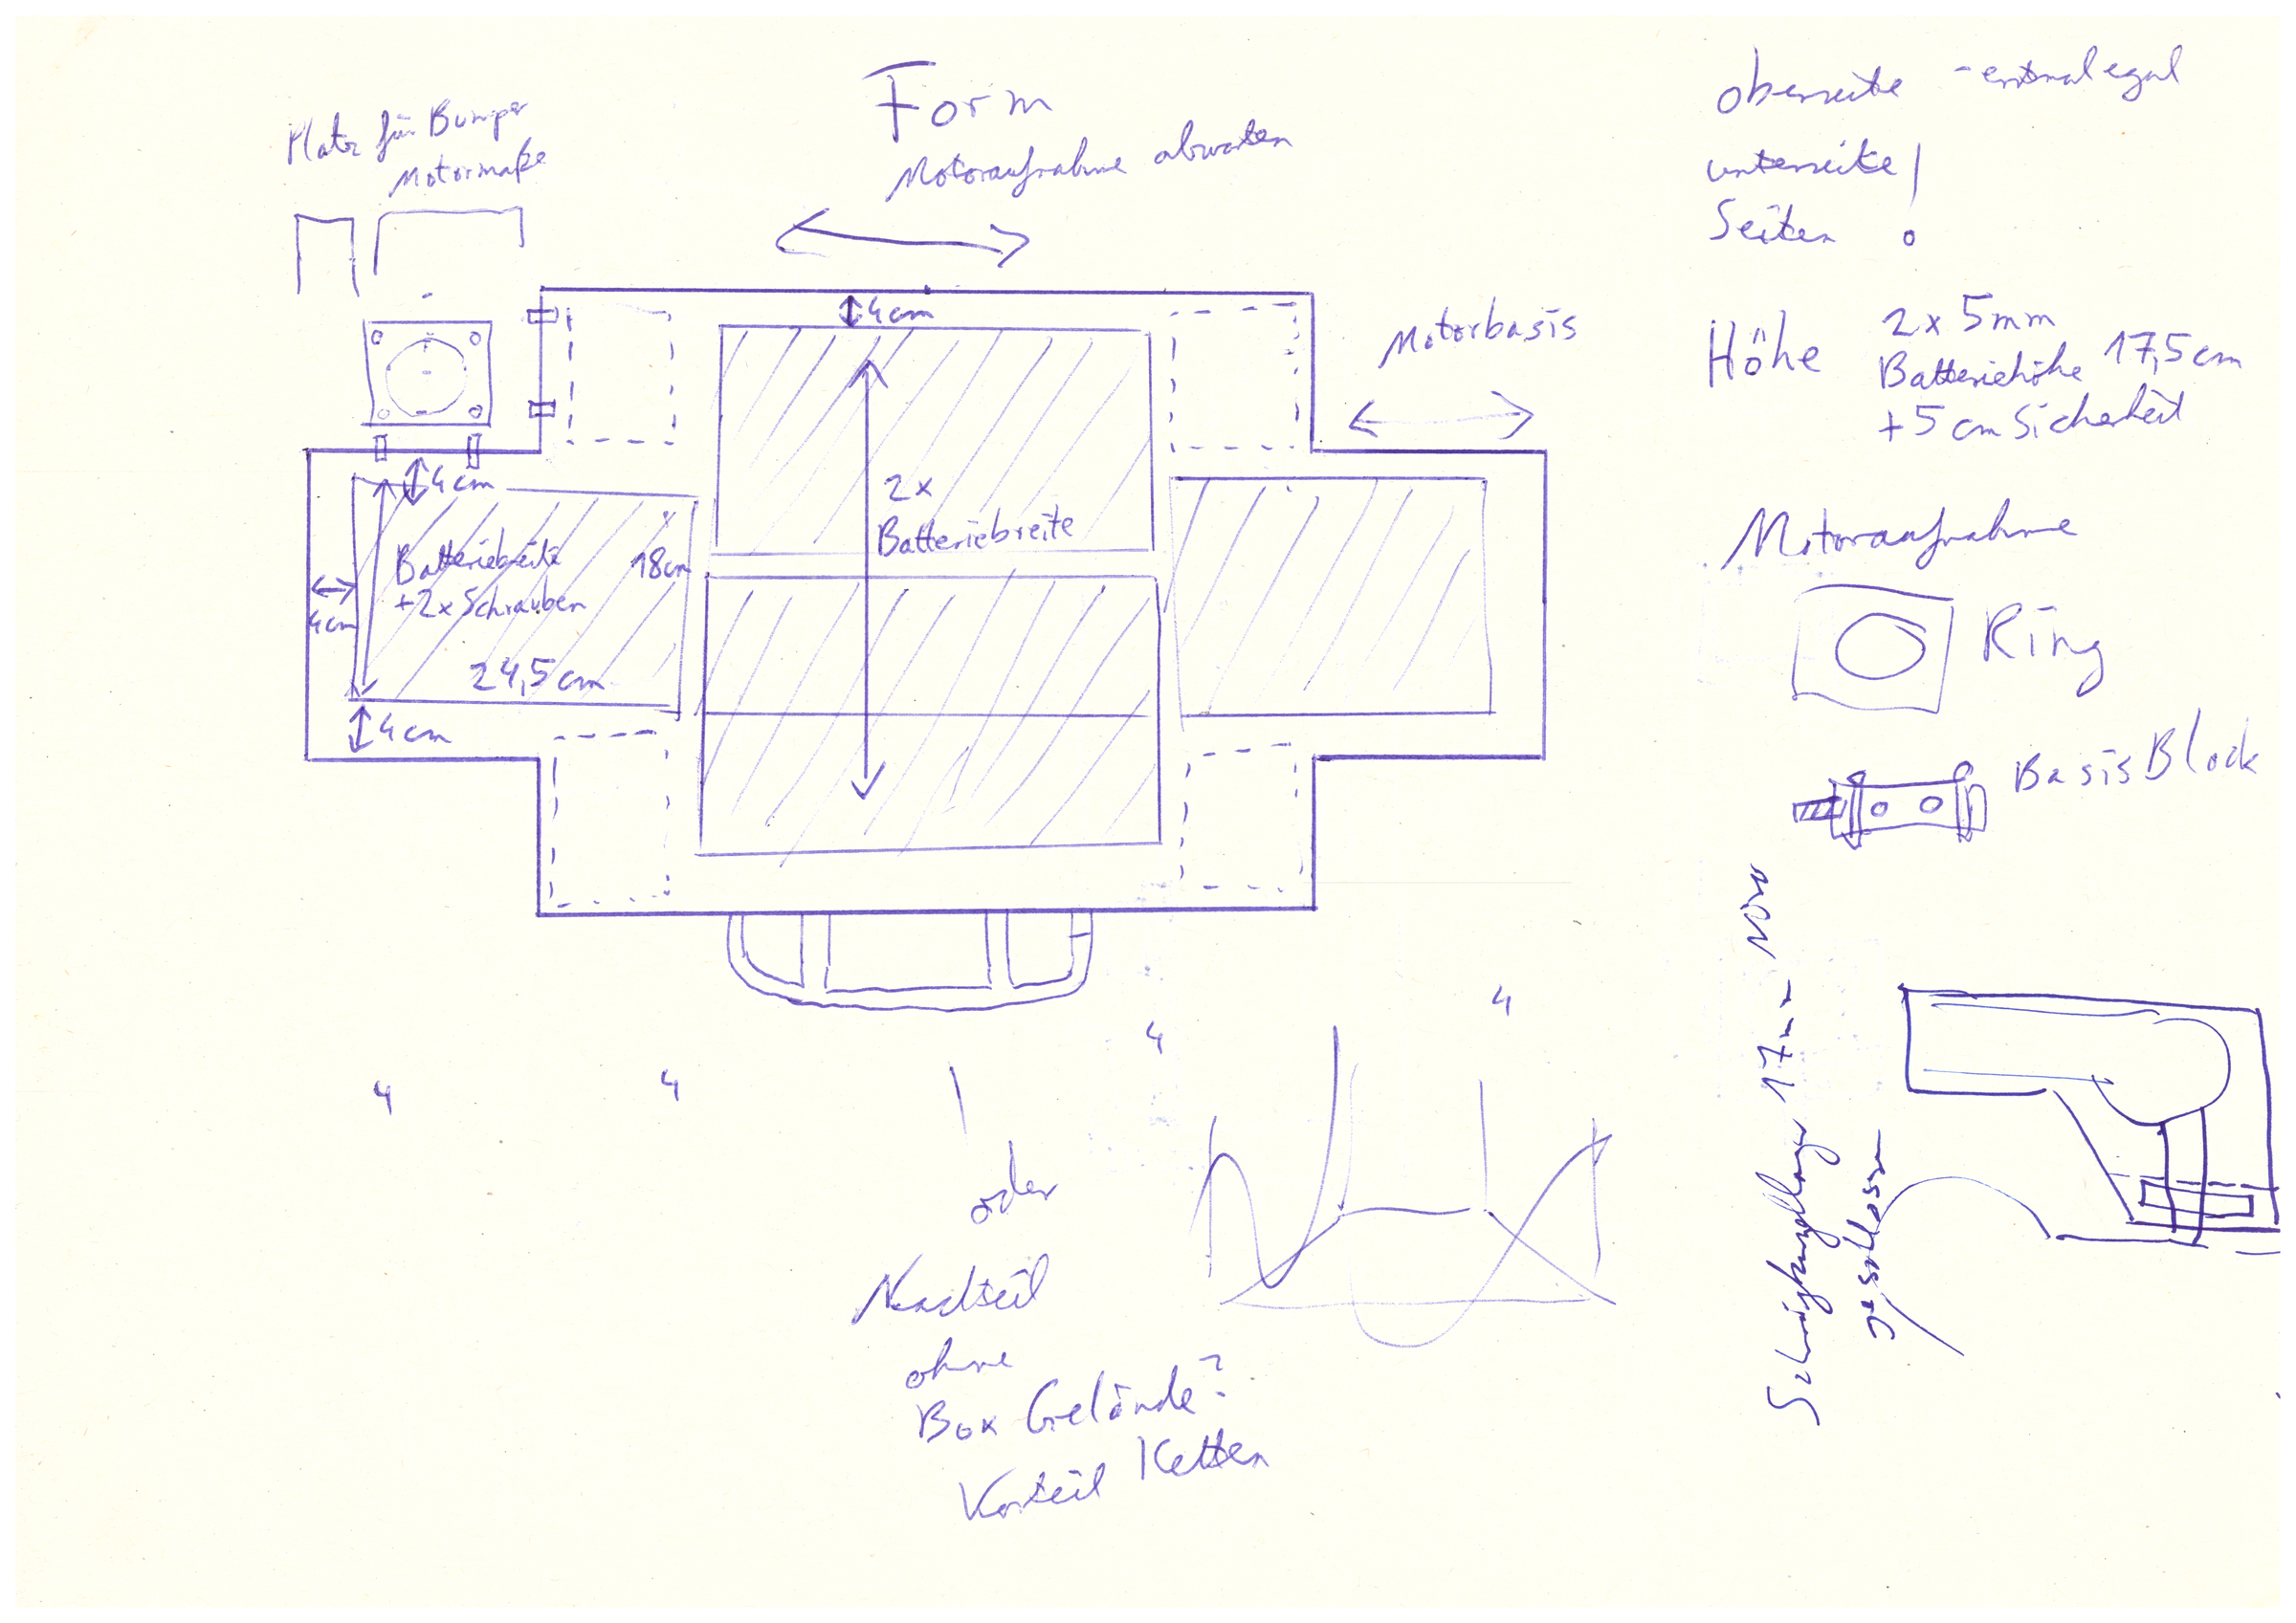 Form
Motoraufnahme abwarten
Platz für Bumper
Motormaße
4cm
Motorbasis
4cm
2x
Batteriebreite
Batteriebreite
+2x Schrauben
18cm
4cm
24,5cm
4cm
oberseite - erstmal egal
unterseite !
Seiten
Höhe
2x 5mm
Batteriehöhe 17,5cm
+5cm Sicherheit
Motoraufnahme
Ring
Basis Block
17mm
geschlossen
4
4
4
4
oder
Nachteil
ohne
Box Gelände?
Vorteil Ketten